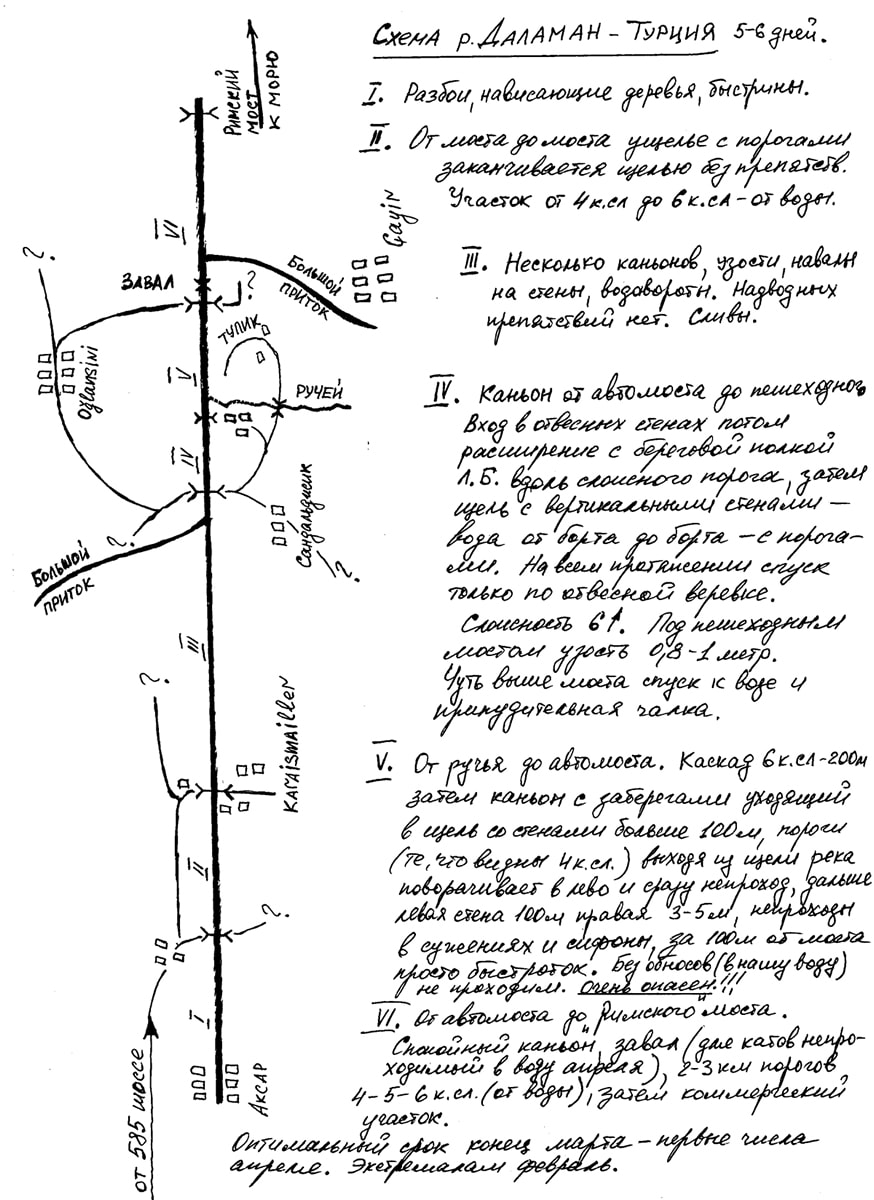 Схема р. Даламан - Турция 5-6 дней.
I. Разбои, нависающие деревья, быстрины.
II. От моста до моста ущелье с порогами
заканчивается щелью без препятств.
Участок от 4 к.сл до 6 к.сл - от воды.
III. Несколько каньонов, узости, навалы
на стены, водовороты. Надводных
препятствий нет. Сливы.
IV. Каньон от автомоста до пешеходного
Вход в отвесных стенах потом
расширение с береговой полкой
Л.Б. вдоль слоисного порога, затем
щель с вертикальными стенами —
вода от борта до борта — с порога-
ми. На всем протяжении спуск
только по отвесной веревке.
Слоисность 6↑. Под пешеходным
мостом узость 0,8-1 метр.
Чуть выше моста спуск к воде и
принудительная чалка.
V. От ручья до автомоста. Каскад 6 к.сл - 200м
затем каньон с заберегами уходящий
в щель со стенами больше 100м, пороги
(те, что видны 4 к.сл.) выходя из щели река
поворачивает в лево и сразу непроход, дальше
левая стена 100м правая 3-5м, непроходы
в сужениях и сифоны, за 100м от моста
просто быстроток. Без обносов (в нашу воду)
не проходим. Очень опасен!!!
VI. От автомоста до "Римского" моста.
Спокойный каньон, завал (для катов непро-
ходимый в воду апреля), 2-3 км порогов
4-5-6 к.сл. (от воды), затем коммерческий
участок.
Оптимальный срок конец марта - первые числа
апреля. Экстремалам февраль.
Римский
мост
к морю
VI
Çayir
?
Завал
?
Большой
приток
Тупик
Oğlansini
V
Ручей
IV
Сандальджик
?
?
Большой
приток
III
?
Karaismailler
II
?
I
Аксар
от 585 шоссе